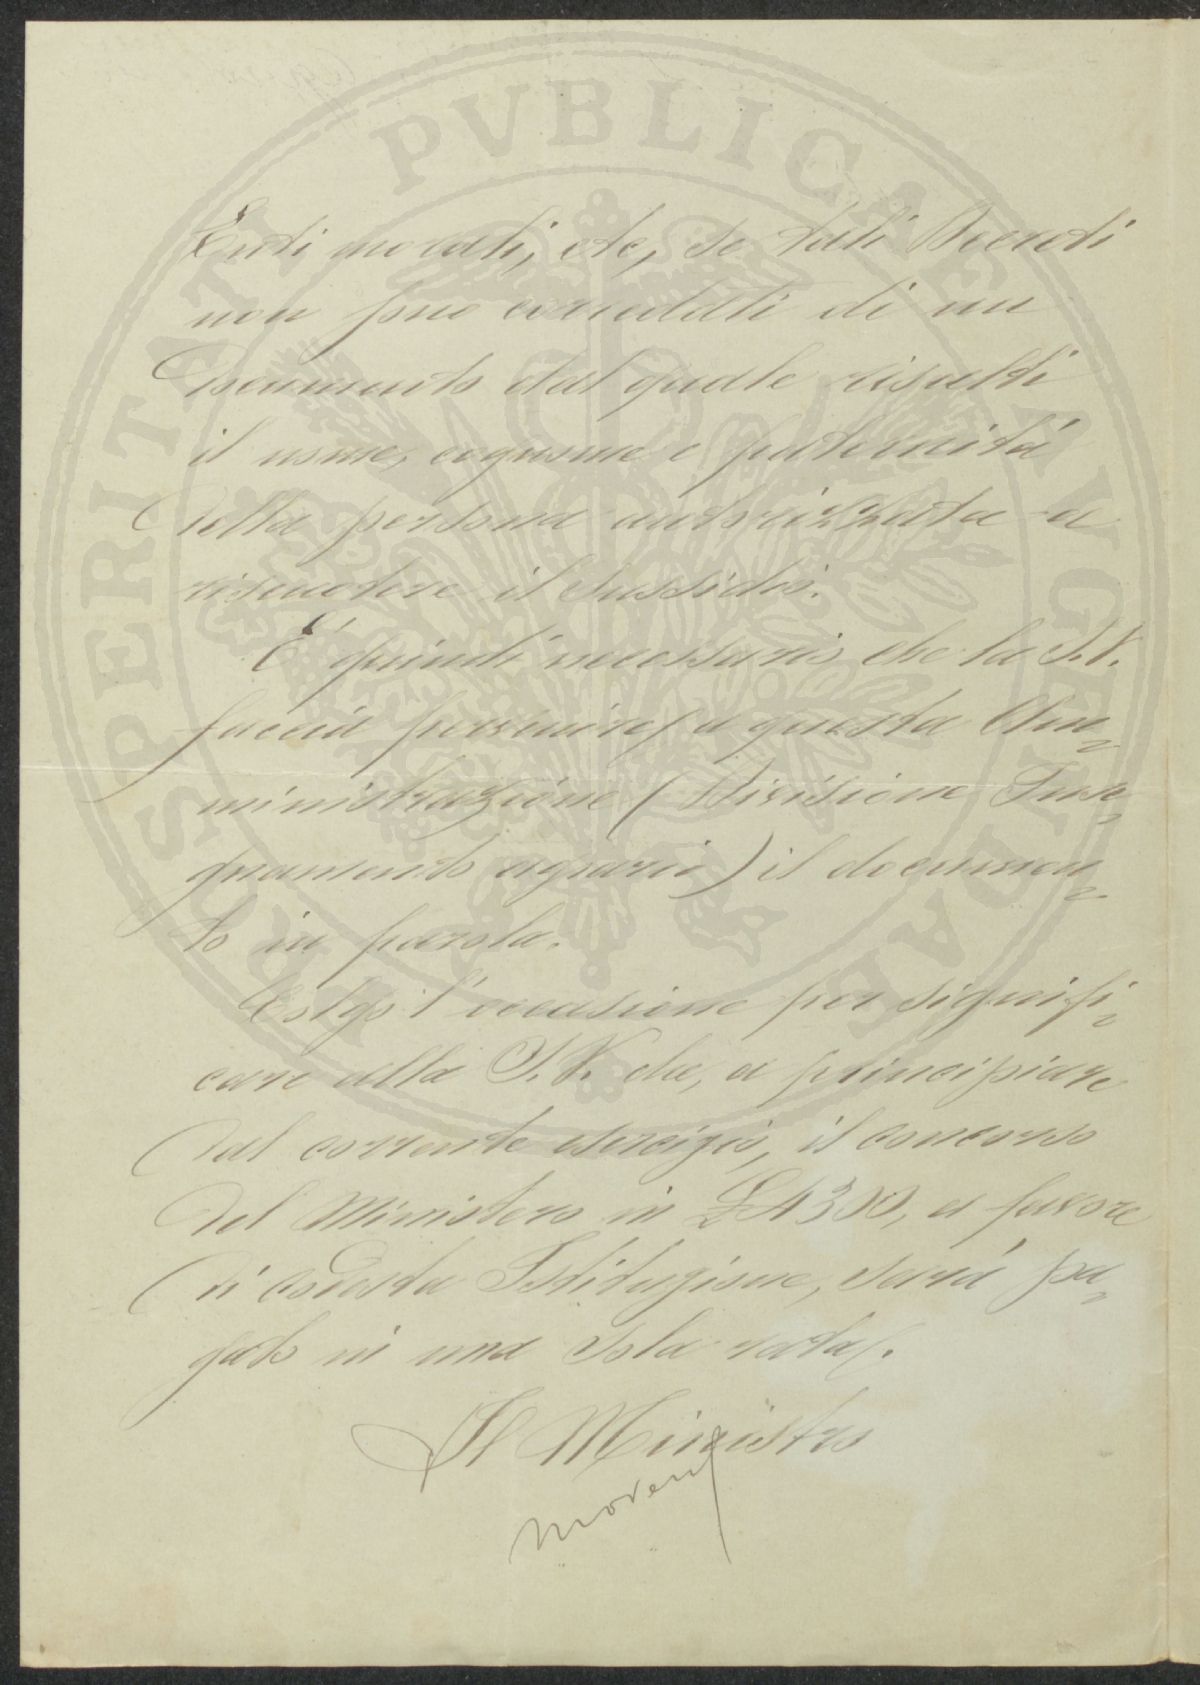 PROSPERITATI PVBLICAE AVGENDAE
Enti morali, etc, se tali Decreti
non sono corredati di un
Documento dal quale risulti
il nome, cognome e paternità
della persona autorizzata a
riscuotere il sussidio.
È quindi necessario che la S.V.
faccia pervenire a questa Am=
ministrazione (Divisione Inse=
gnamento agrario) il documen=
to in parola.
Colgo l'occasione per signifi=
care alla S.V. che, a principiare
dal corrente esercizio, il concorso
del Ministero in £ 4300, a favore
di codesta Istituzione, sarà pa=
gato in una sola rata.
Il Ministro